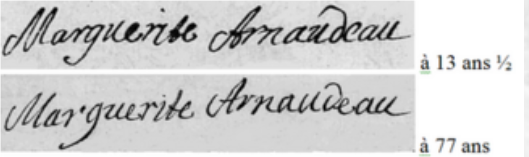 Marguerite Arnaudeau
à 13 ans ½
Marguerite Arnaudeau
à 77 ans